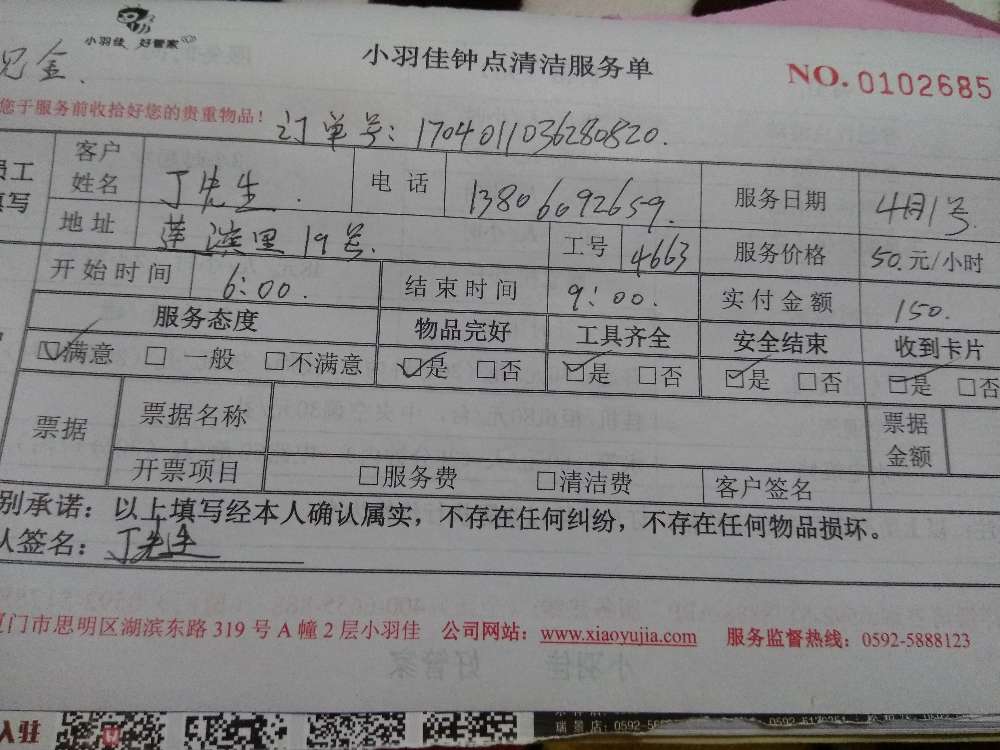 小羽佳 好管家
小羽佳钟点清洁服务单
NO.0102685
金.
您于服务前收拾好您的贵重物品!
订单号: 1704011036280820.
员工
填写
客户
姓名
丁先生.
电话
13806092659.
服务日期
4月1号.
地址
莲滨里19号.
工号
4663
服务价格
50.元/小时
开始时间
6:00.
结束时间
9:00.
实付金额
150.
服务态度 物品完好 工具齐全 安全结束 收到卡片
☑满意 □一般 □不满意 ☑是 □否 ☑是 □否 ☑是 □否 ☑是 □否
票据
票据名称
票据
金额
开票项目 □服务费 □清洁费 客户签名
别承诺:以上填写经本人确认属实,不存在任何纠纷,不存在任何物品损坏。
人签名:丁先生
厦门市思明区湖滨东路319号A幢2层小羽佳 公司网站:www.xiaoyujia.com 服务监督热线:0592-5888123
入驻